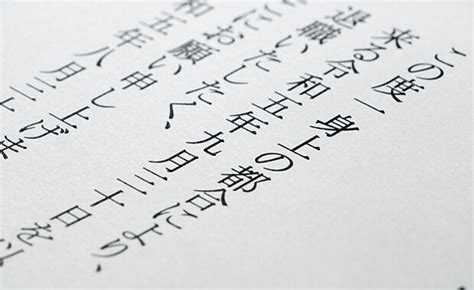 この度一身上の都合により、
来る令和五年九月三十日を以
退職いたしたく、
こにお願い申し上げま
和五年八月三十